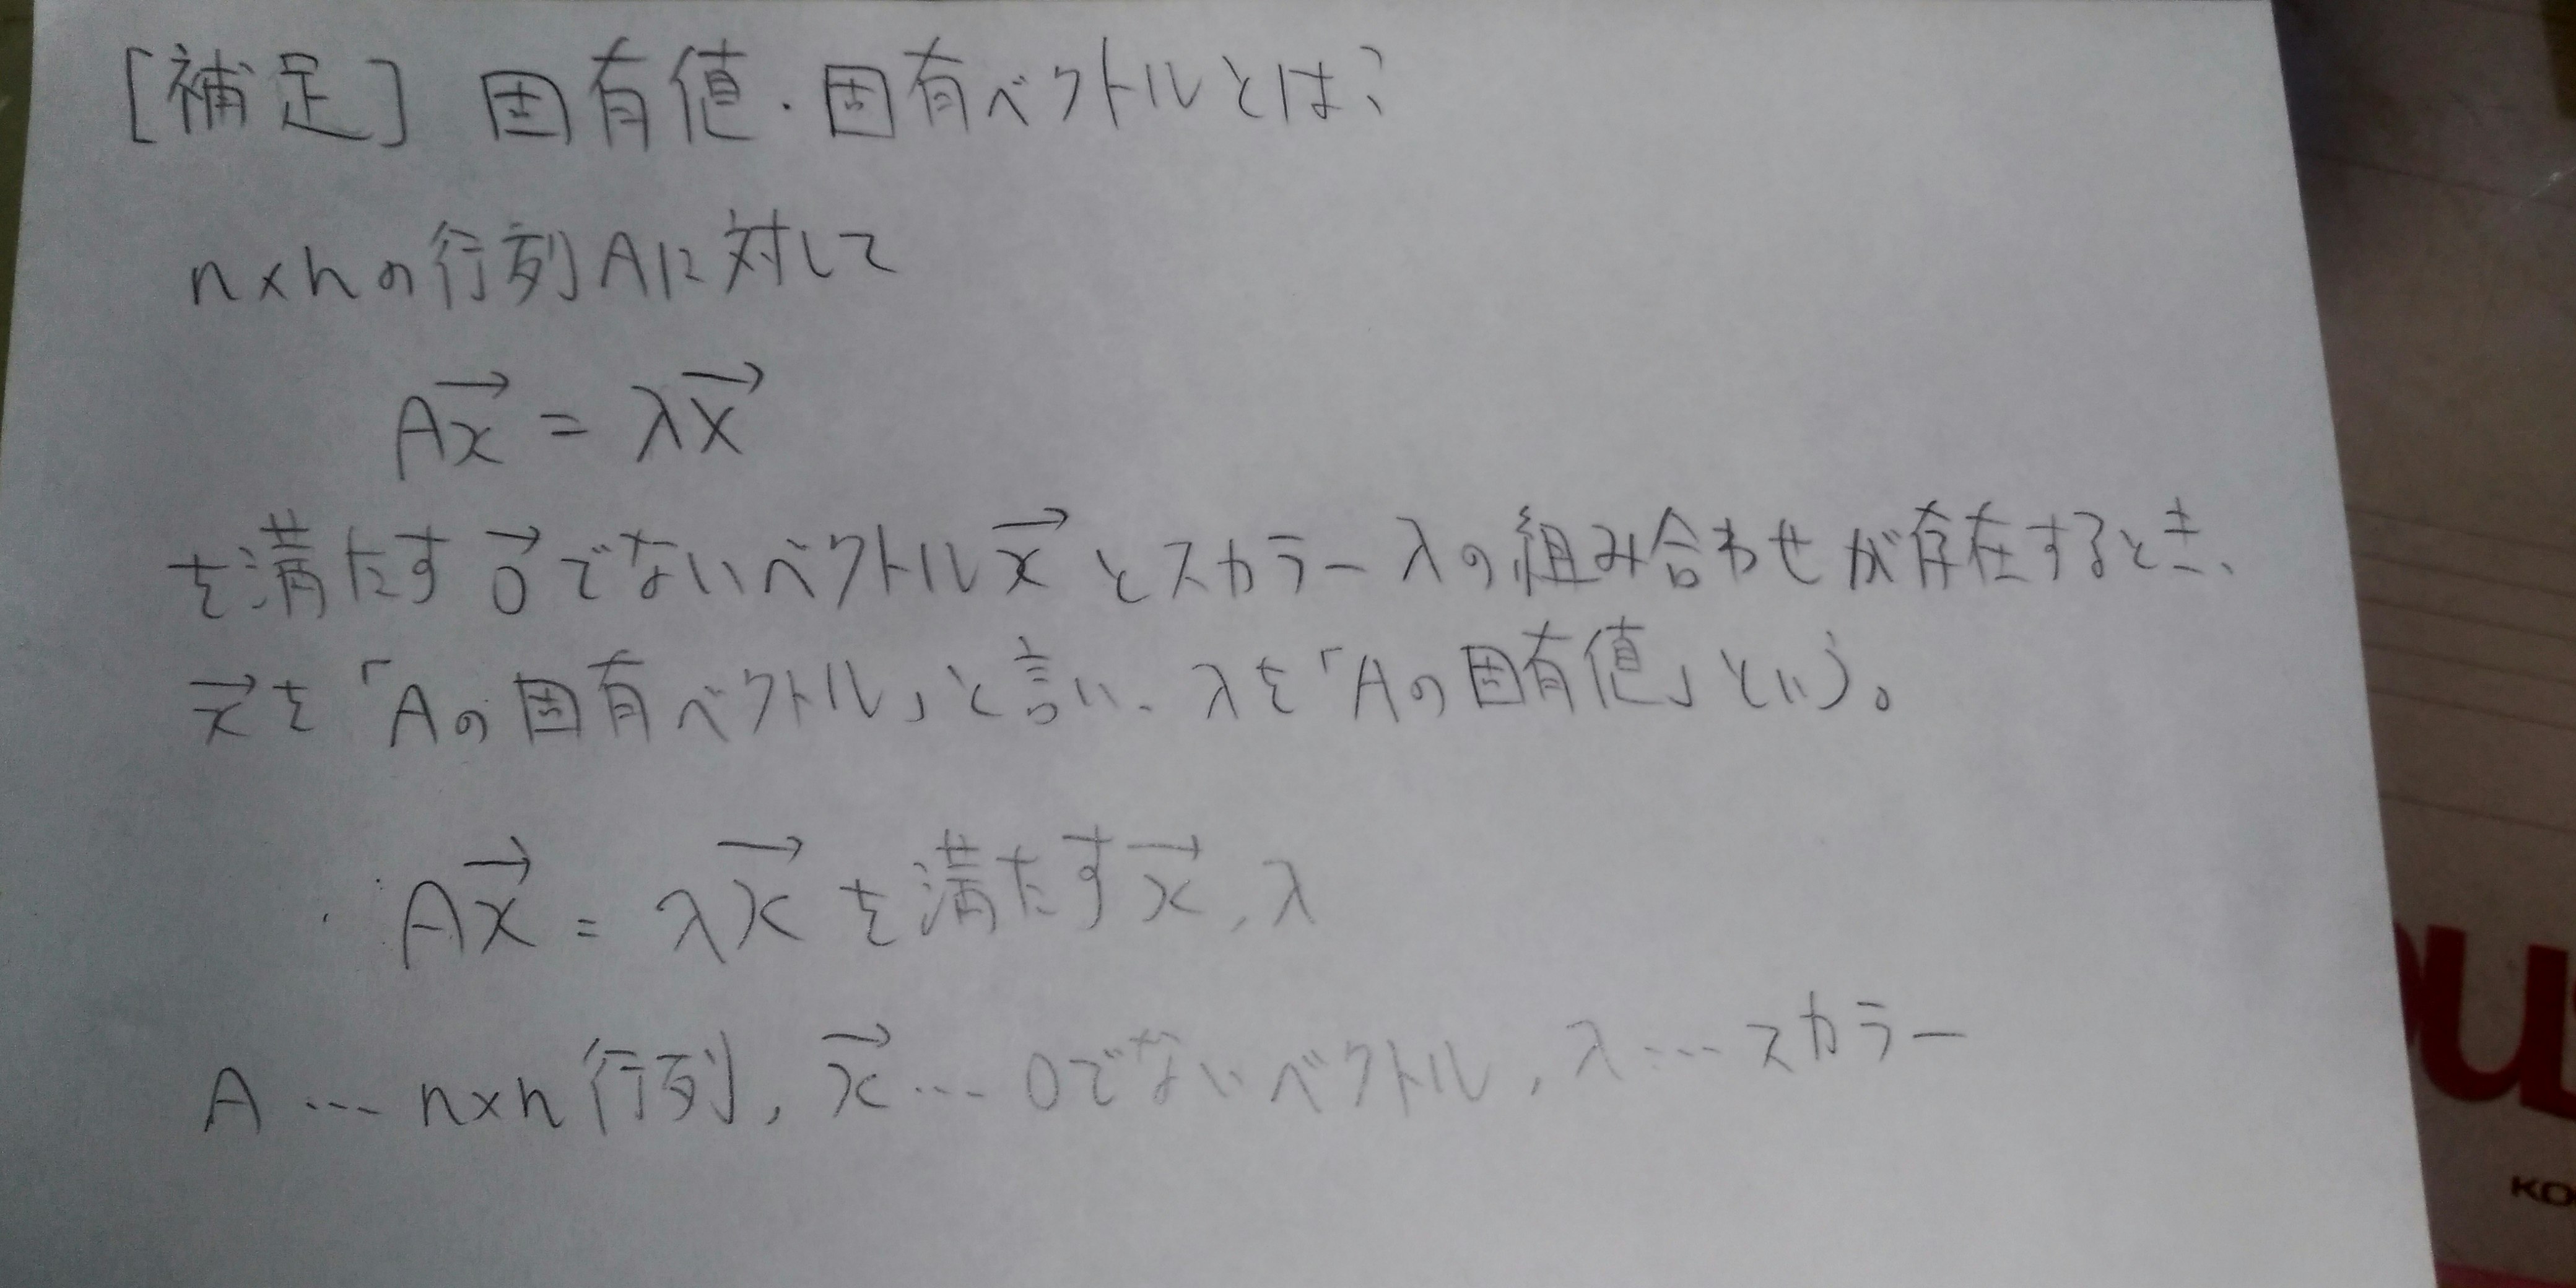 [補足] 固有値・固有ベクトルとは?
n×nの行列Aに対して
Ax⃗ = λx⃗
を満たす0⃗でないベクトルx⃗とスカラーλの組み合わせが存在するとき、
x⃗を「Aの固有ベクトル」と言い、λを「Aの固有値」という。
Ax⃗ = λx⃗を満たすx⃗, λ
A … n×n行列, x⃗ … 0でないベクトル, λ … スカラー